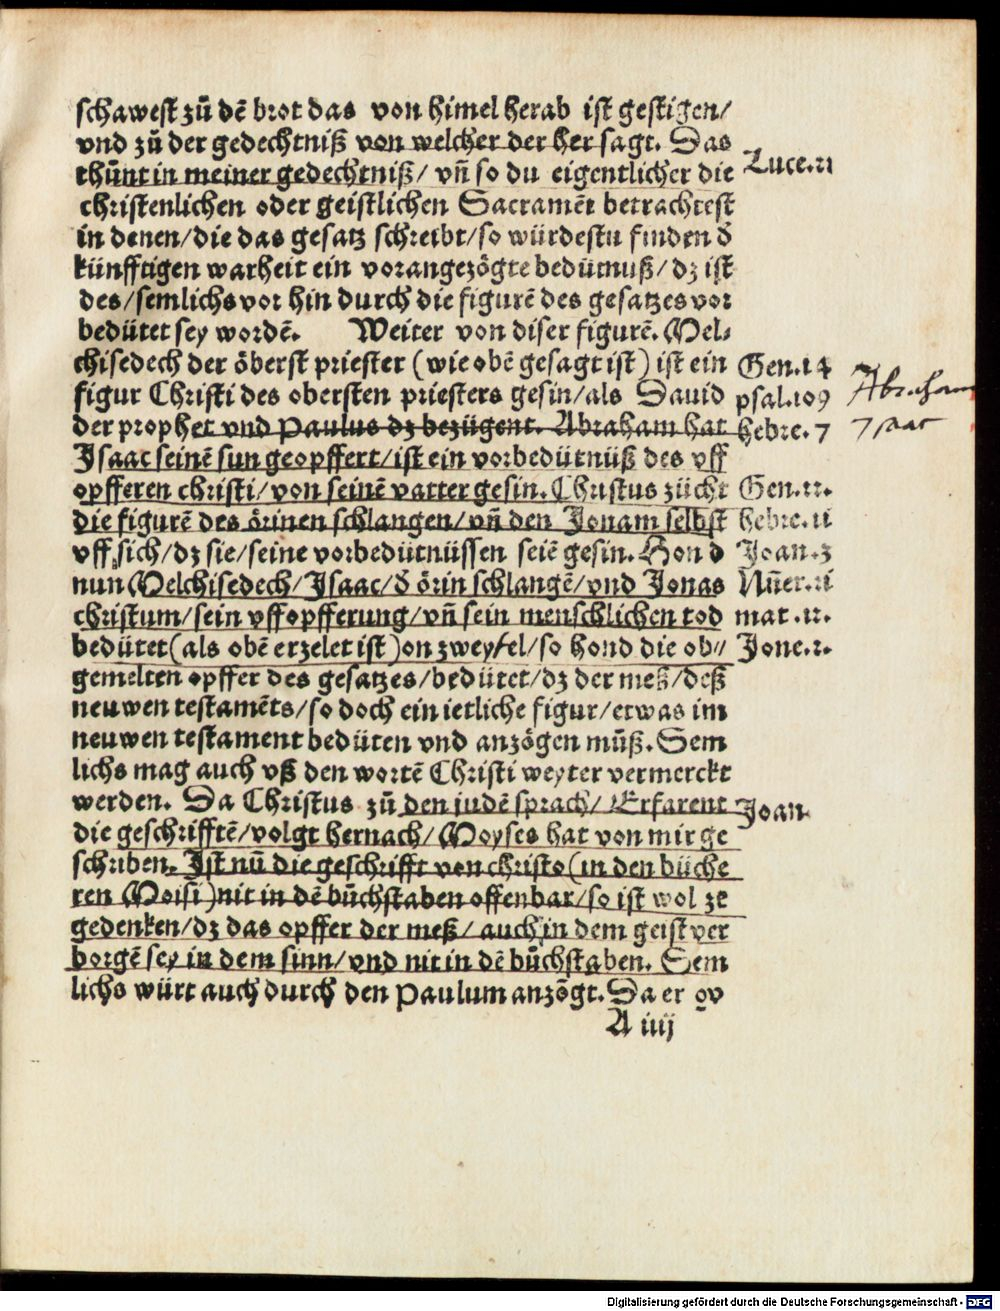 schawest zů dē brot das von himel herab ist gestigen/
vnd zů der gedechtniß von welcher der her sagt. Das
thůnt in meiner gedechtniß/ vñ so du eigentlicher die
Luce. 22
christenlichen oder geistlichen Sacramēt betrachtest
in denen/die das gesatz schreibt/so würdestu finden d̄
künfftigen warheit ein vorangezögte bedütnuß/dz ist
des/semlichs vor hin durch die figurē des gesatzes vor
bedütet sey wordē. Weiter von diser figurē. Mel⸗
chisedech der öberst priester (wie obē gesagt ist) ist ein
Gen. 14
figur Christi des obersten priesters gesin/als Dauid
psal. 109
Abraham
der prophet vnd Paulus dz bezügent. Abraham hat
hebre. 7
Isaac
Isaac seinē sun geopffert/ist ein vorbedütnüß des vff
opfferen christi/von seinē vatter gesin. Christus zücht
Gen. 22.
die figurē des örinen schlangen/vñ den Jonam selbst
hebre. 11
vff sich/dz sie/seine vorbedütnüssen seiē gesin. Hond
Joan. 3
nun Melchisedech/Isaac/d̄ örin schlangē/vnd Jonas
Nūer. 21
christum/sein vffopfferung/vñ sein menschlichen tod
mat. 12.
bedütet(als obē erzelet ist)on zweyfel/so hond die ob⸗
Jone. 2.
gemelten opffer des gesatzes/bedütet/dz der meß/deß
neuwen testamēts/so doch ein ietliche figur/etwas im
neuwen testament bedüten vnd anzögen můß. Sem
lichs mag auch vß den wortē Christi weyter vermerckt
werden. Da Christus zů den judē sprach/ Erfarent
Joan.
die geschrifftē/volgt hernach/Moyses hat von mir ge
schriben. Ist nū die geschrifft von christo(in den büche
ren Moisi)nit in dē bůchstaben offenbar/so ist wol ze
gedenken/dz das opffer der meß/ auch in dem geist ver
borgē sey in dem sinn/vnd nit in dē bůchstaben. Sem
lichs würt auch durch den Paulum anzögt. Da er ov
A iiij
Digitalisierung gefördert durch die Deutsche Forschungsgemeinschaft - DFG